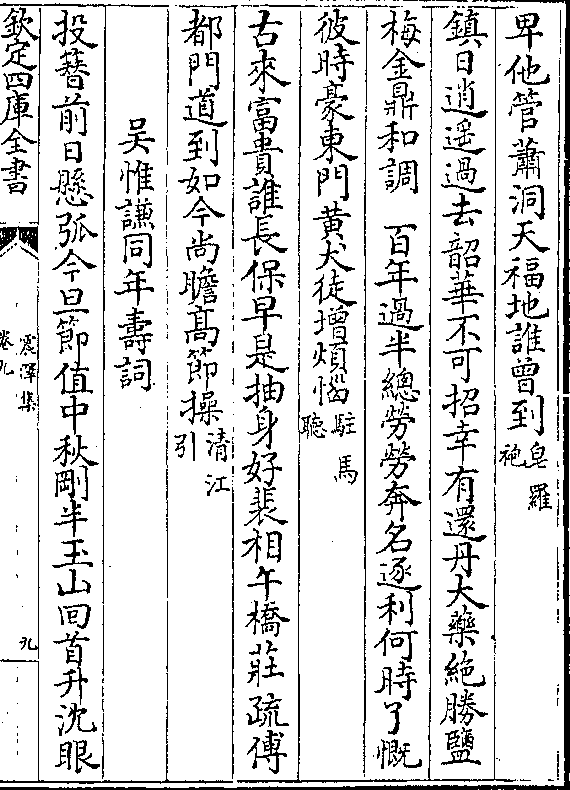 畀他管蕭洞天福地誰曾到皂羅袍
鎮日逍遥過去韶華不可招幸有還丹大藥絶勝鹽
梅金鼎和調　百年過半總勞勞奔名逐利何時了慨
彼時豪東門黄犬徒增煩惱駐馬聽
古來富貴誰長保早是抽身好裴相午橋莊疏傅
都門道到如今尚瞻髙節操清江引
吴惟謙同年壽詞
投簪前日懸弧今旦節值中秋剛半玉山回首升沈眼
欽定四庫全書
震澤集
卷九
九